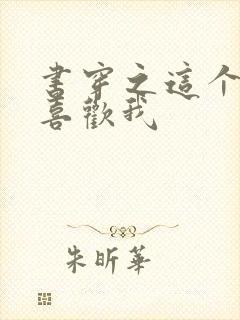 書穿之這个
喜歡我
朱昕華